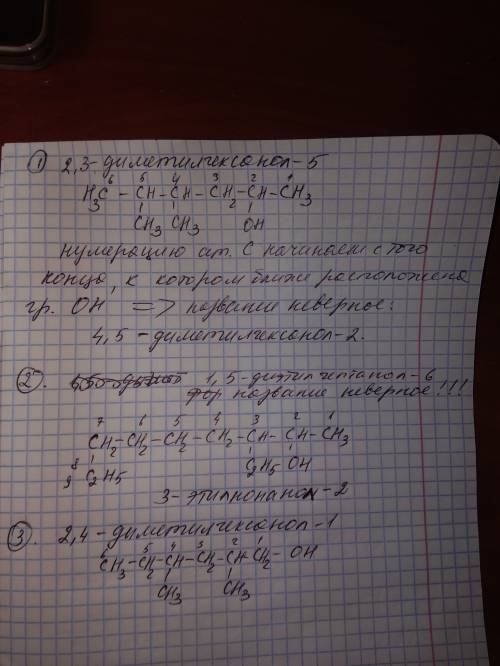 ① 2,3-диметилгексанол-5
6 5 4 3 2 1
H₃C - CH - CH - CH₂ - CH - CH₃
CH₃ CH₃ OH
нумерацию ат. C начинаем с того
конца, к котором ближе расположена
гр. OH => название неверное:
4,5-диметилгексанол-2.
②. 1,5-диэтилгептанол-6
название неверное!!!
7 6 5 4 3 2 1
CH₂-CH₂-CH₂-CH₂-CH-CH-CH₃
8
9 C₂H₅ C₂H₅ OH
3-этилнонанол-2
③. 2,4-диметилгексанол-1
6 5 4 3 2 1
CH₃-CH₂-CH-CH₂-CH-CH₂-OH
CH₃ CH₃